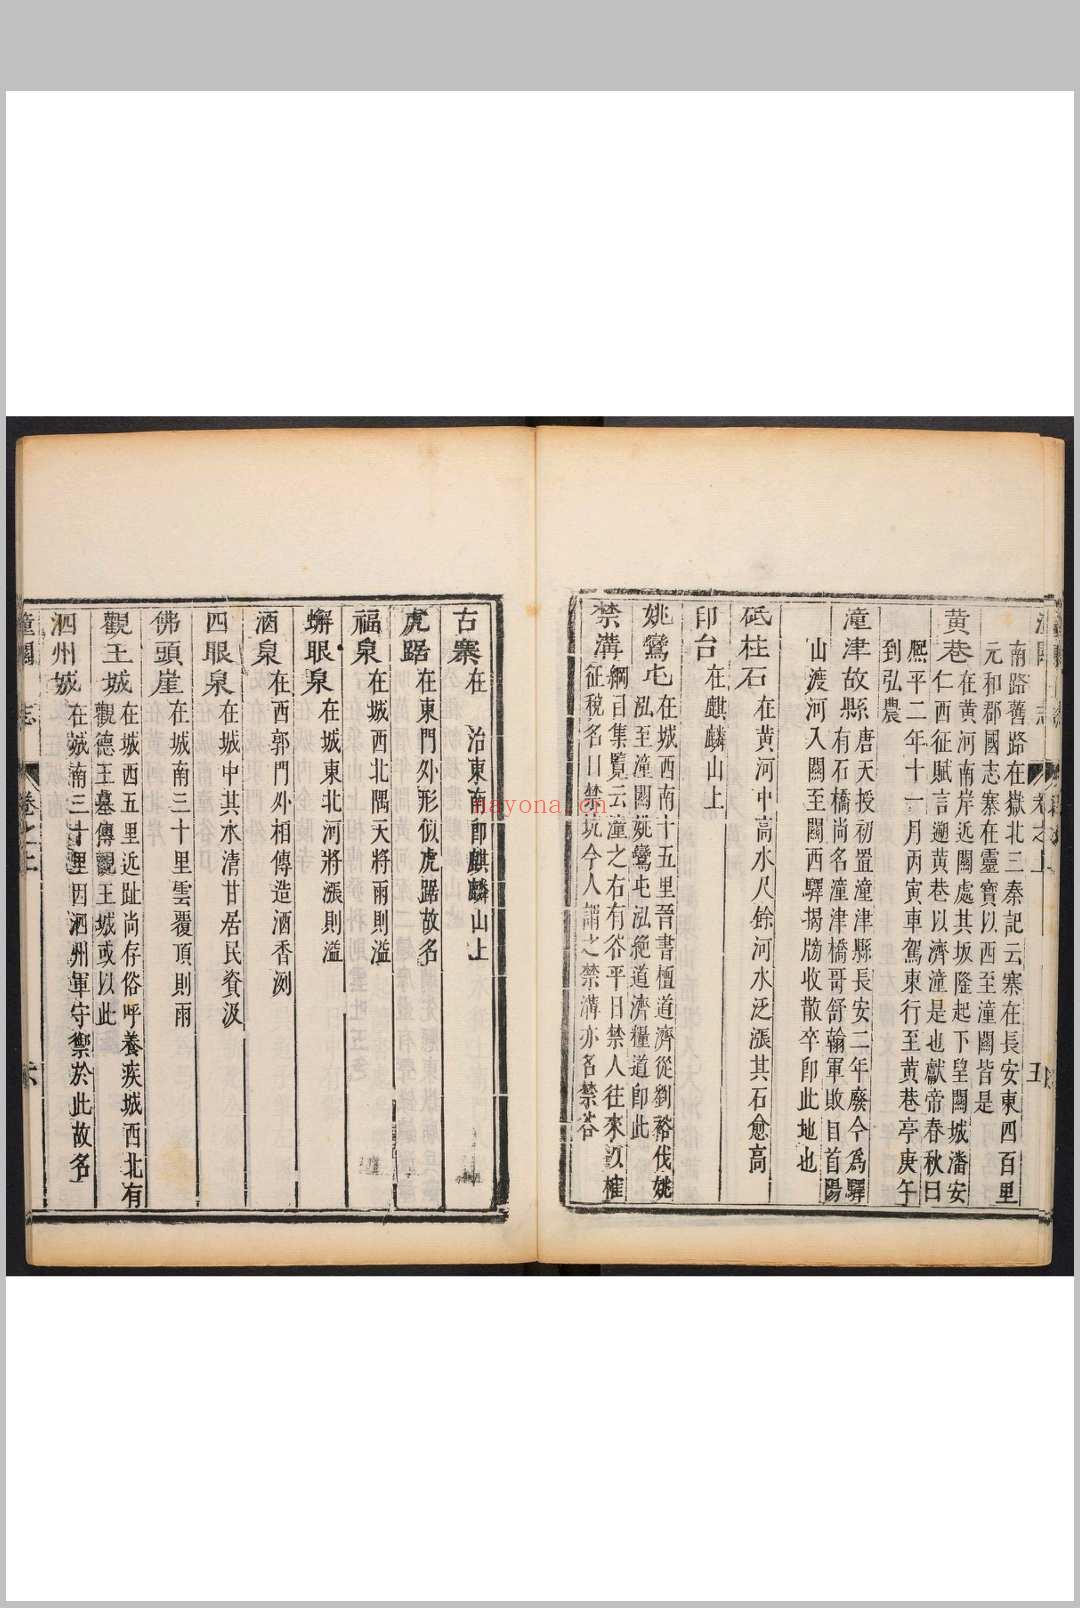 南路舊路在嶽北三秦記云寨在長安東四百里
元和郡國志寨在靈寶以西至潼關皆是
黃巷在黃河南岸近關處其坂隆起下望關城潘安
仁西征賦言遡黃巷以濟潼是也獻帝春秋曰
熙平二年十一月丙寅車駕東行至黃巷亭庚午
到弘農
潼津故縣唐天授初置潼津縣長安二年廢今為驛
有石橋尚名潼津橋哥舒翰軍敗自首陽
山渡河入關至關西驛揭牓收散卒即此地也
砥柱石在黃河中高水尺餘河水泛漲其石愈高
印台在麒麟山上
姚鸞屯在城西南十五里晉書檀道濟從劉裕伐姚
泓至潼關姚鸞屯泓絶道濟糧道即此
禁溝綱目集覽云潼之右有谷平日禁人往來以榷
征稅名曰禁坑今人謂之禁溝亦名禁谷
卷之上
五
古寨在 治東南即麒麟山上
虎踞在東門外形似虎踞故名
福泉在城西北隅天將雨則溢
蠏眼泉在城東北河將漲則溢
酒泉在西郭門外相傳造酒香洌
四眼泉在城中其水清甘居民資汲
佛頭崖在城南三十里雲覆頂則雨
觀王城在城西五里近趾尚存俗呼養疾城西北有
觀德王墓傳觀王城或以此
泗州城在城南三十里因泗州軍守禦於此故名
潼關 志
卷之上
六
nayona.cn